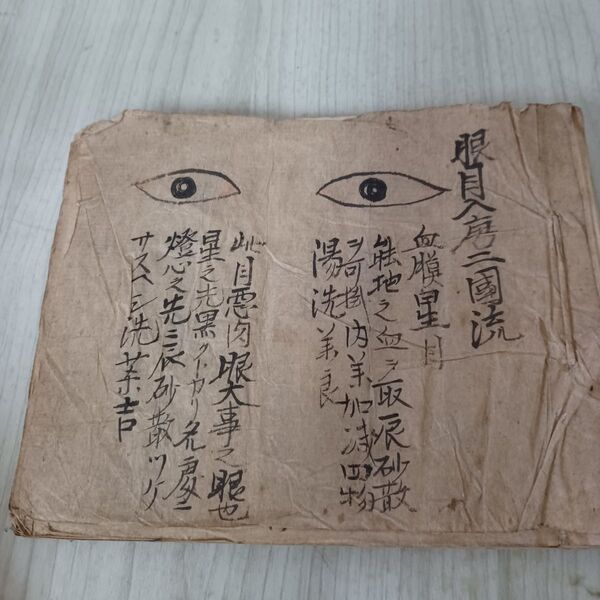 眼目入唐二國流
血膜星目
能地之血ヲ取辰砂散
ヲ可掛内羊加減四物
湯洗羊良
此目悪肉眼大事之眼也
星之先黒クトカリ見處ニ
燈心之先ニ辰砂散ツケ
サスヘシ洗薬吉